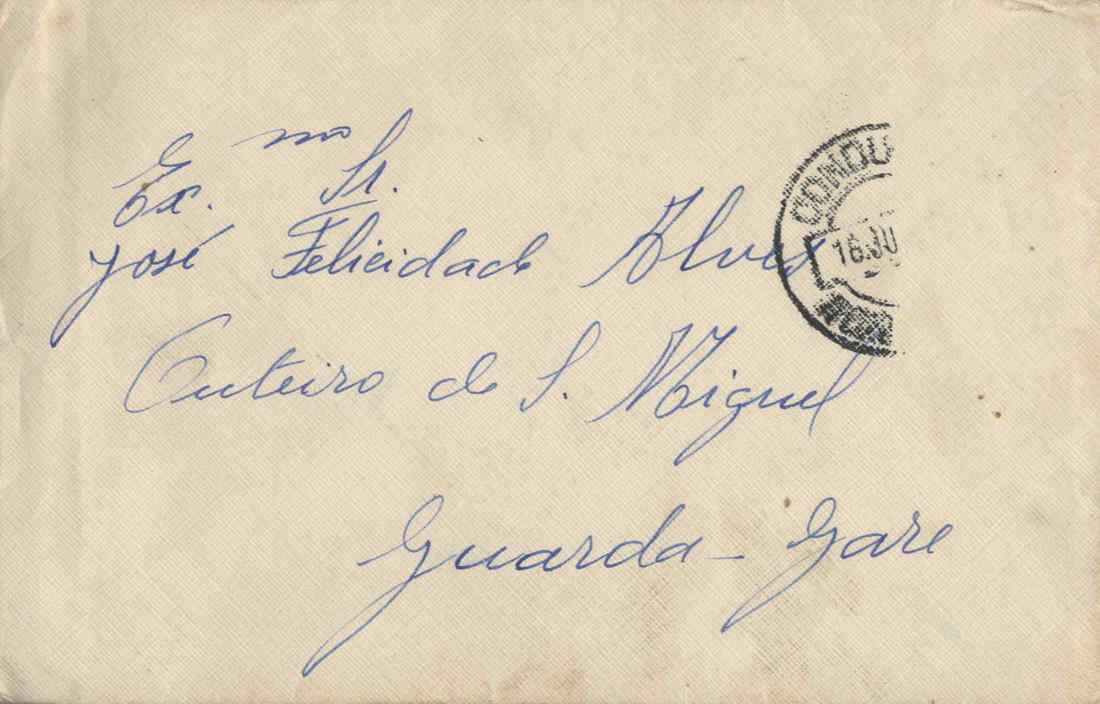 Ex.mo Sr.
José Felicidade Alves
Outeiro de S. Miguel
Guarda-Gare
CONDU
16.JU